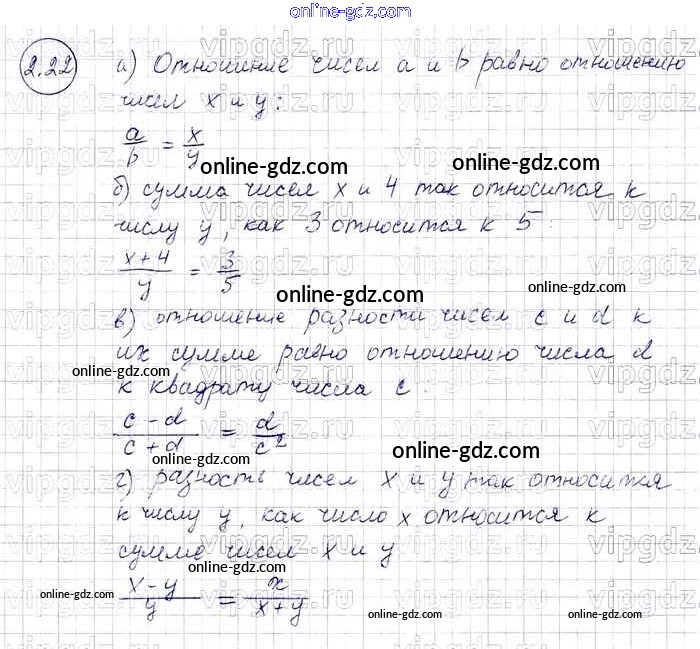 online-gdz.com
2.22
а) Отношение чисел a и b равно отношению
чисел x и y:
a/b = x/y
online-gdz.com
б) сумма чисел x и 4 так относится к
числу y, как 3 относится к 5:
(x+4)/y = 3/5
online-gdz.com
в) отношение разности чисел c и d к
их сумме равно отношению числа d
online-gdz.com
к квадрату числа c:
(c-d)/(c+d) = d/c²
online-gdz.com
online-gdz.com
г) разность чисел x и y так относится
к числу y, как число x относится к
сумме чисел x и y
online-gdz.com
(x-y)/y = x/(x+y)
online-gdz.com
online-gdz.com
online-gdz.com